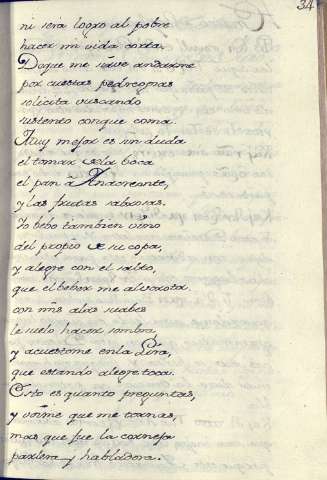 34
ni sera logro al pobre
hacer mi vida corta.
Doque me sirve andarme
por cuestas pedregosas
solicita buscando
sustento conque coma.
Muy mejor es sin duda
el tomar de la boca
el pan a Anacreonte,
y las frutas sabrosas.
Yo bebo tambien vino
del propio de su copa,
y alegre con el salto,
que el bebor me alvorota.
con mis alas suabes
le suelo hacer sombra,
y acuestome enla Lira,
que estando alegre toca.
Esto es quanto preguntas,
y vñime que me tornas,
mas que fue la corneja
parlera y habladora.